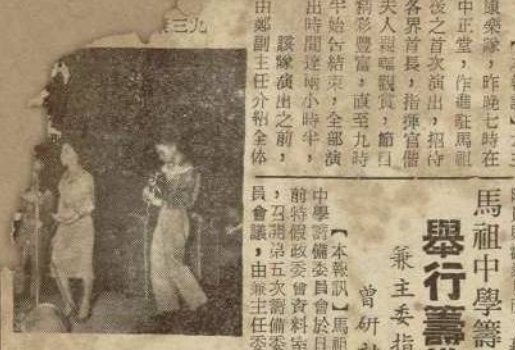 康樂隊，昨晚七時在
中正堂，作進駐馬祖
後之首次演出，招待
各界首長，指揮官偕
夫人親臨觀賞，節目
精彩豐富，直至九時
半始告結束，全部演
出時間達兩小時半，
該隊演出之前，
由鄭副主任介紹全体
九三
馬祖中學籌
舉行籌
兼主委指
曾研
【本報訊】馬祖
中學籌備委員會於日
前特假政委會資料室
，召開第五次籌備委
員會議，由兼主任委